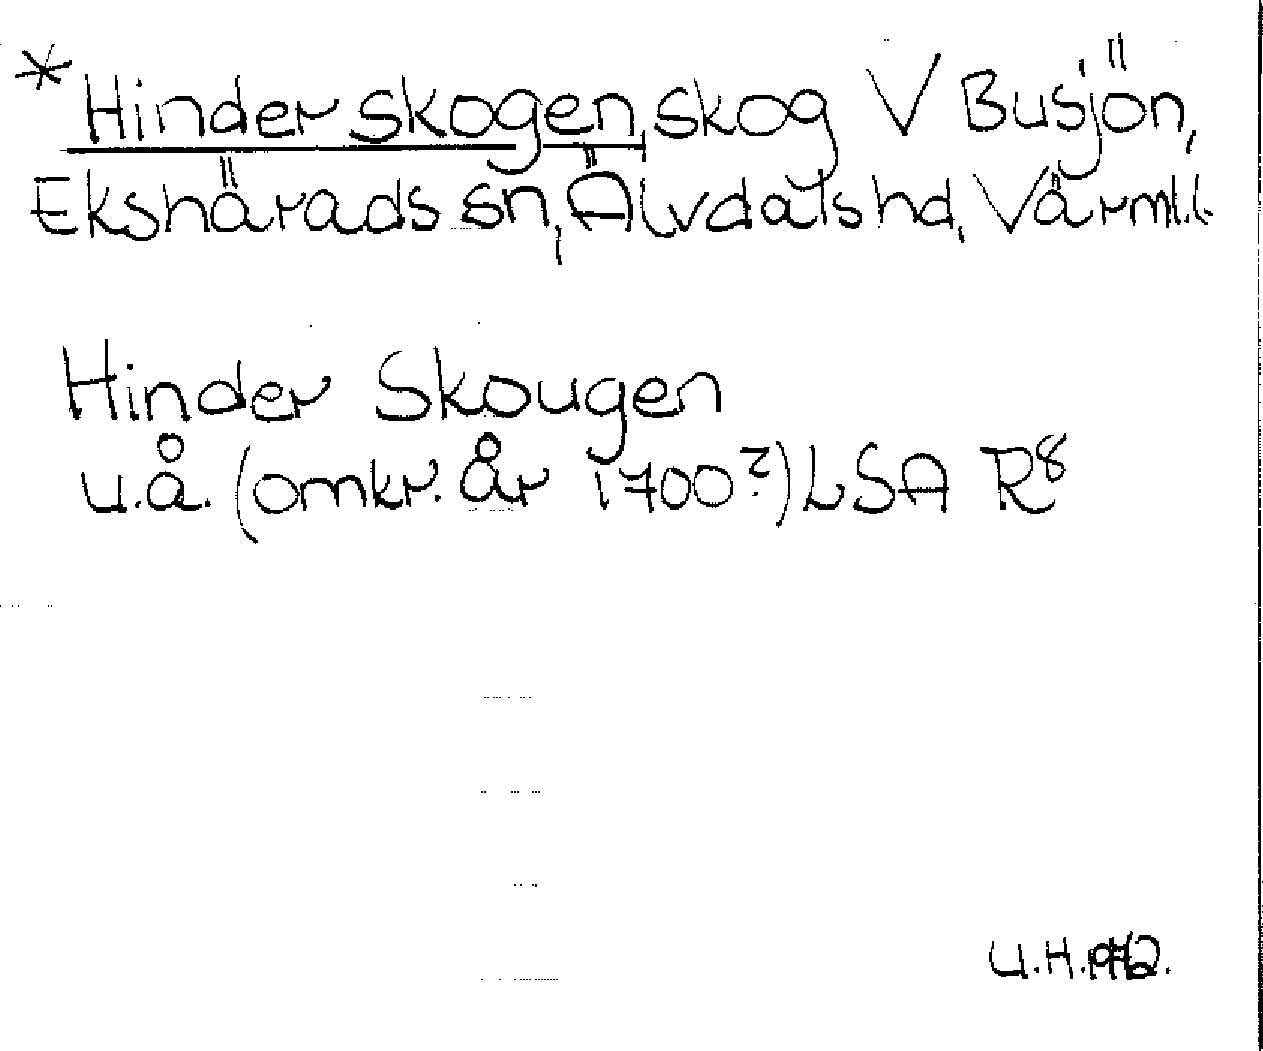 *Hinderskogen, skog V Busjön,
Ekshärads sn, Älvdals hd, Värml.l.
Hinder Skougen
u.å. (omkr. år 1700?) LSA R8
U.H. 1972.